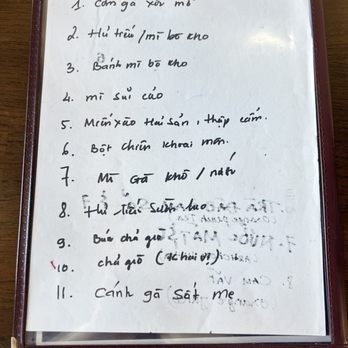 1. Cơm gà xối mỡ
2. Hủ tiếu/mì bò kho
3. Bánh mì bò kho
4. mì sủi cảo
5. Miến xào Hải Sản, thập cẩm.
6. Bột chiên khoai môn.
7. Mì Gà khô / nước
8. Hủ tiếu sườn
9. Bún chả giò
10. chả giò (Khai vị)
11. Cánh gà sốt me